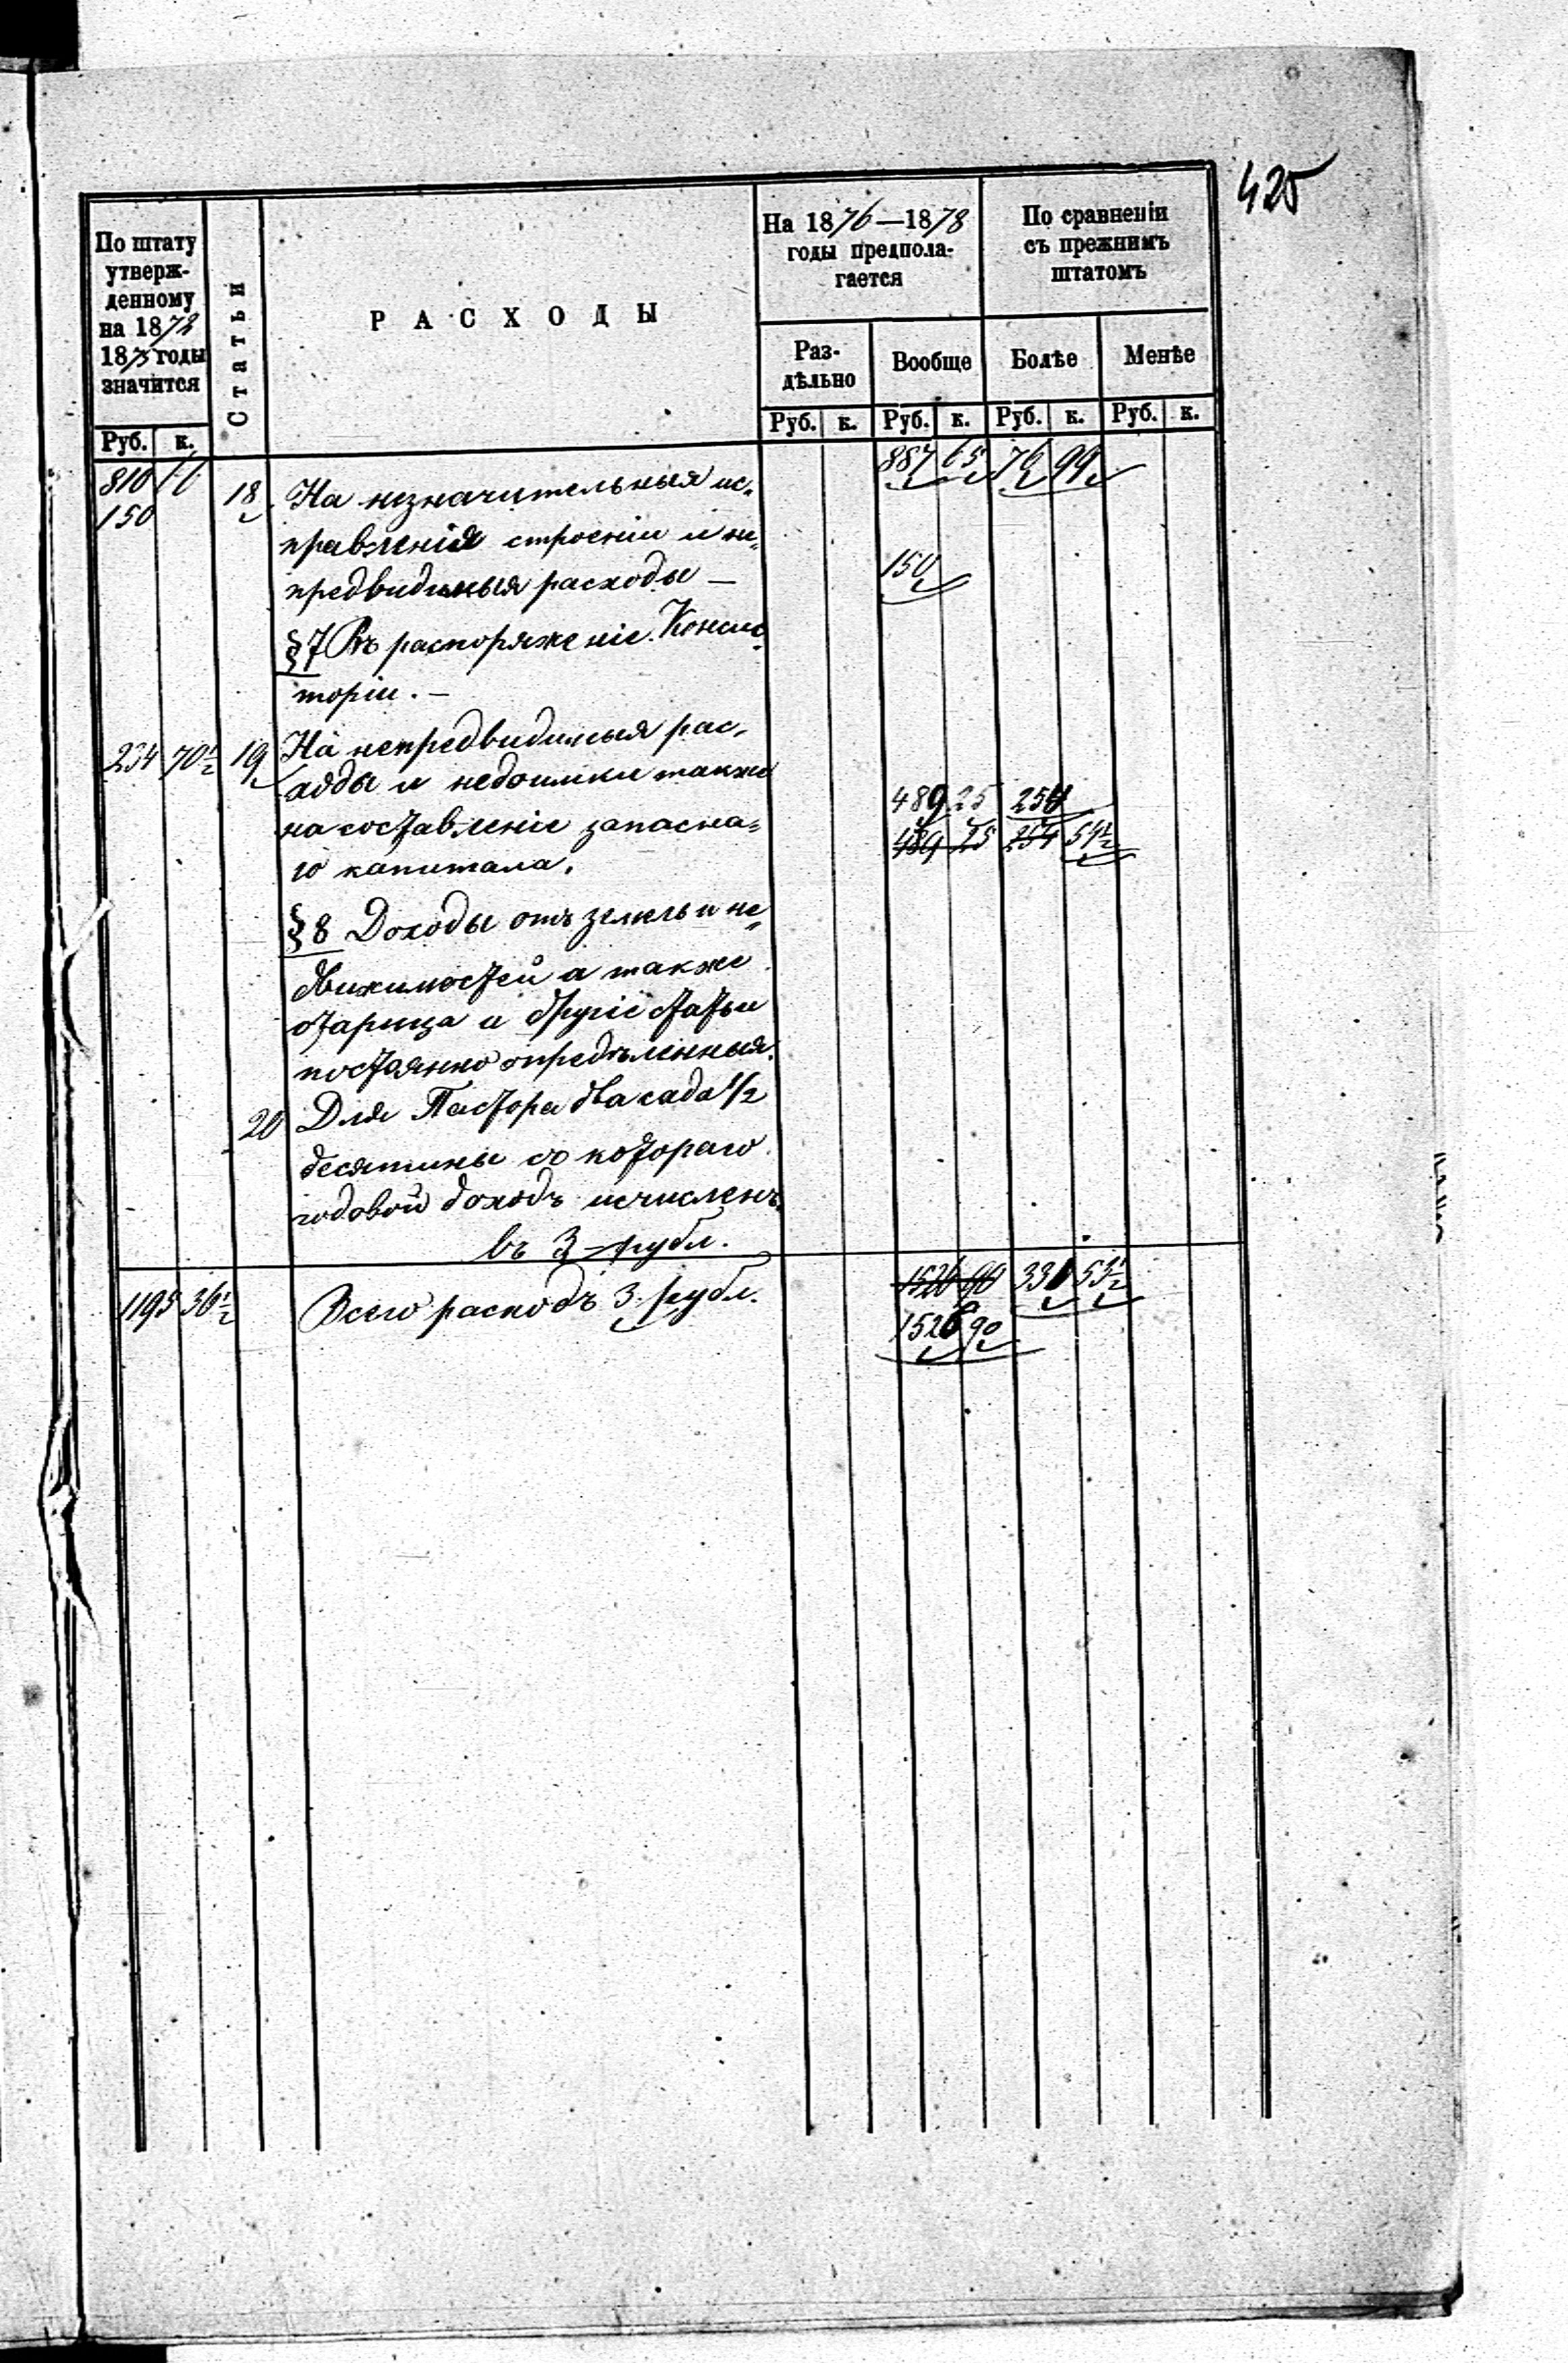 425
По штату
утверж-
денному
на 1872
1873 годы
значится
Статьи
РАСХОДЫ
На 1876—1878
годы предпола-
гается
По сравненіи
съ прежнимъ
штатомъ
Раз-
дѣльно
Вообще
Болѣе
Менѣе
Руб. к. Руб. к. Руб. к. Руб. к. Руб. к.
810 887 65 76 99
150 18 На незначительныя ис-
правленія строеніи и не-
предвидимыя расходы — 150
§ 7 Въ распоряженіе Консис-
торіи. —
234 70½ 19 На непредвидимыя рас-
ходы и недоимки также
на составленіе запасна- 489 25 254
го капитала. 489 25 254 54½
§ 8 Доходы отъ земель и не-
движимостей а также
и другіе статьи
постоянно опредѣленныя.
20 Для Пастора два сада ½
десятины съ котораго
годовой доходъ исчисленъ
въ 3 рубл.
1195 36½ Всего расходъ 3 рубл. 1526 90 331 53½
1526 90